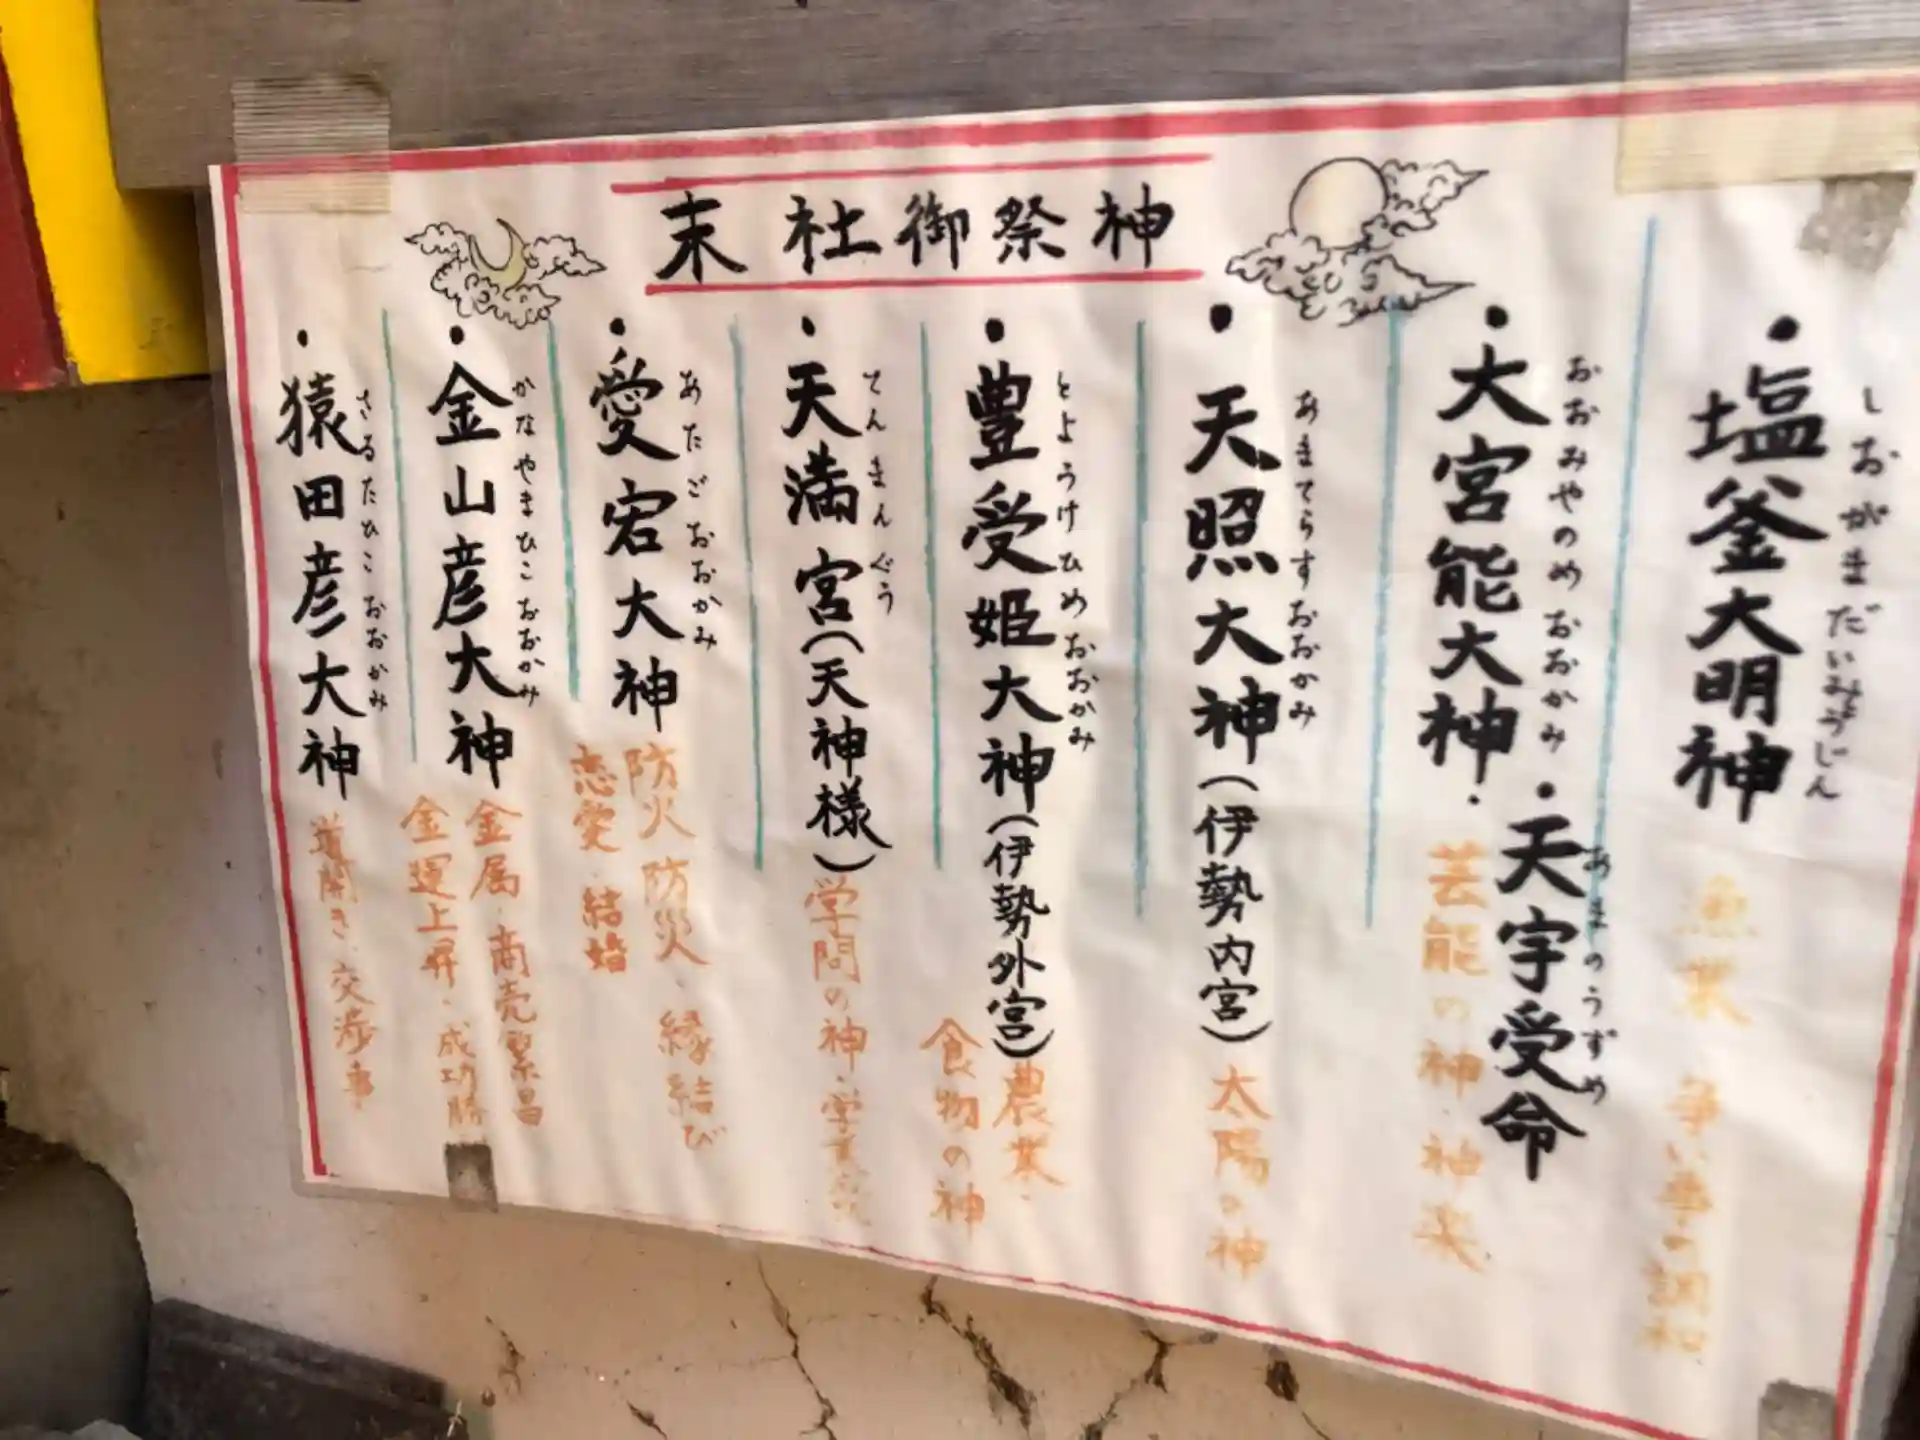 末社御祭神
・塩釜大明神
しおがまだいみょうじん
漁業 争い事の調和
・大宮能大神・
おおみやのめおおかみ
・天宇受命
あまのうずめ
芸能の神・神楽
・天照大神(伊勢内宮)
あまてらすおおかみ
太陽の神
・豊受姫大神(伊勢外宮)
とようけひめおおかみ
農業・
食物の神
・天満宮(天神様)
てんまんぐう
学問の神・学業
・愛宕大神
あたごおおかみ
防火 防災、縁結び
恋愛・結婚
・金山彦大神
かなやまひこおおかみ
金属・商売繁昌
金運上昇・成功勝
・猿田彦大神
さるたひこおおかみ
道開き、交渉事